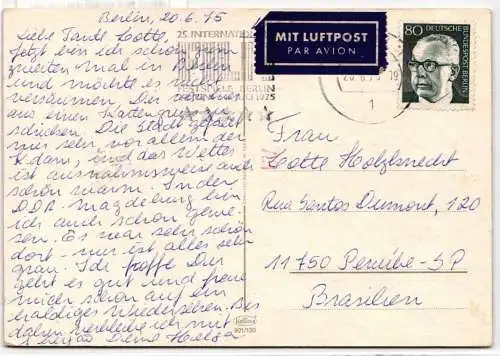 Berlin, 20.6.75
Liebe Tante Lotte.
Jetzt bin ich schon zum
zweiten Mal in Berlin
und möchte es nicht
versäumen, Dir
aus einen Kartengruß zu
schicken. Die Stadt gefällt
mir sehr, vor allem der
K'dam, und das Wetter
ist ausnahmsweise auch
schön warm. In der
DDR Magdeburg bin
ich auch schon gewe-
sen. Es war sehr schön
dort - nur ist alles sehr
grau. Ich hoffe Dir
geht es gut und freue
mich schon auf ein
baldiges Wiedersehen. Bis
dahin verbleibe ich mit
Deine Helga
25. INTERNATIO
FESTSPIELE BERLIN
1975
MIT LUFTPOST
PAR AVION
19
1
80 DEUTSCHE
BUNDESPOST BERLIN
Frau
Lotte Holzknecht
Rua Santos Dumont, 120
11750 Peruíbe-SP
Brasilien